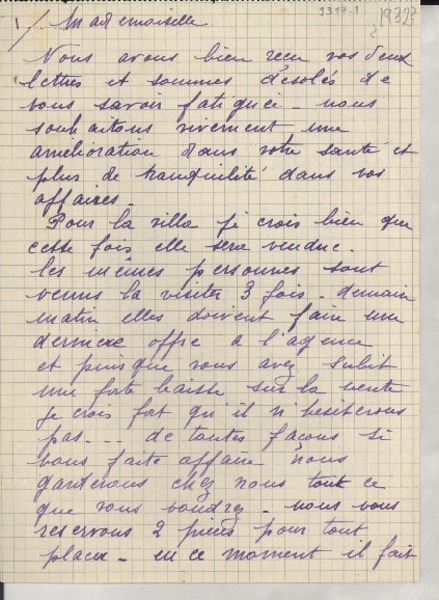 1/ Mademoiselle 1317.1 1932?
?
Nous avons bien recu vos deux
lettres et sommes désolés de
vous savoir fatiguée - nous
souhaitons vivement une
amélioration dans votre santé et
plus de tranquilité dans vos
affaires -
Pour la villa je crois bien que
cette fois elle sera vendue.
les mêmes personnes sont
venus la visiter 3 fois. demain
matin elles doivent faire une
derniere offre a l'agence
et puisque vous avez subit
une forte baisse sur la vente
je crois fort qu'il n'hesiterons
pas --- de toutes façons si
vous faite affaire nous
garderons chez nous tout ce
que vous voudrez - nous vous
reservons 2 pièces pour tout
placer - en ce moment il fait